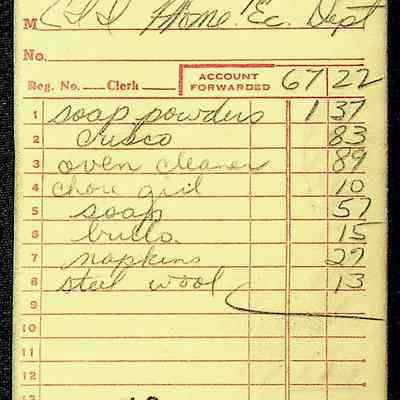 M Home Ec. Dept
No.
Reg. No. Clerk ACCOUNT FORWARDED 67 22
1 soap powders 1 37
2 Crisco 83
3 oven cleaner 89
4 chore girl 10
5 soap 57
6 brillo. 15
7 napkins 27
8 steel wool 13
9
10
11
12
13